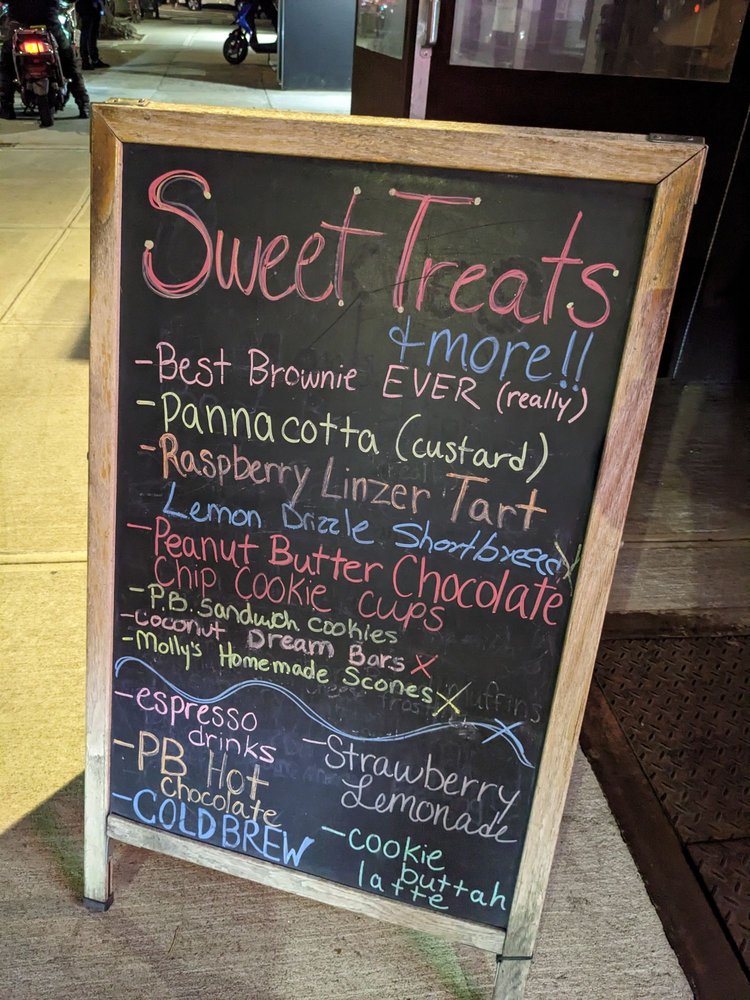 Sweet Treats
& more!!
- Best Brownie EVER (really)
- Pannacotta (custard)
- Raspberry Linzer Tart
Lemon Drizzle Shortbread X
- Peanut Butter Chocolate
Chip Cookie Cups
- P.B. Sandwich Cookies
- Coconut Dream Bars X
- Molly's Homemade Scones X
muffins
- espresso
drinks
- PB Hot
Chocolate
- COLD BREW
- Strawberry
Lemonade
- cookie
buttah
latte